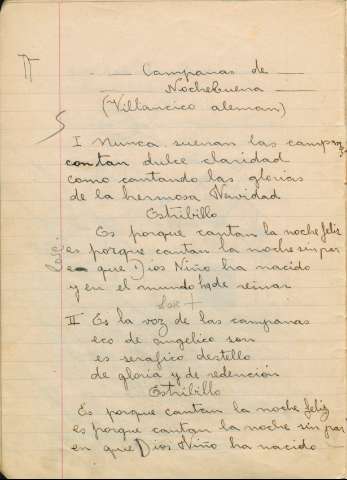 Campanas de
Nochebuena
(Villancico aleman)
I Nunca suenan las campanas
con tan dulce claridad
como cantando las glorias
de la hermosa Navidad
Estribillo
Es porque cantan la noche feliz
es porque cantan la noche sin par
en que Dios Niño ha nacido
y en el mundo ha de reinar
II Es la voz de las campanas
eco de angelico son
es serafico destello
de gloria y de redención
Estribillo
Es porque cantan la noche feliz
es porque cantan la noche sin par
en que Dios Niño ha nacido